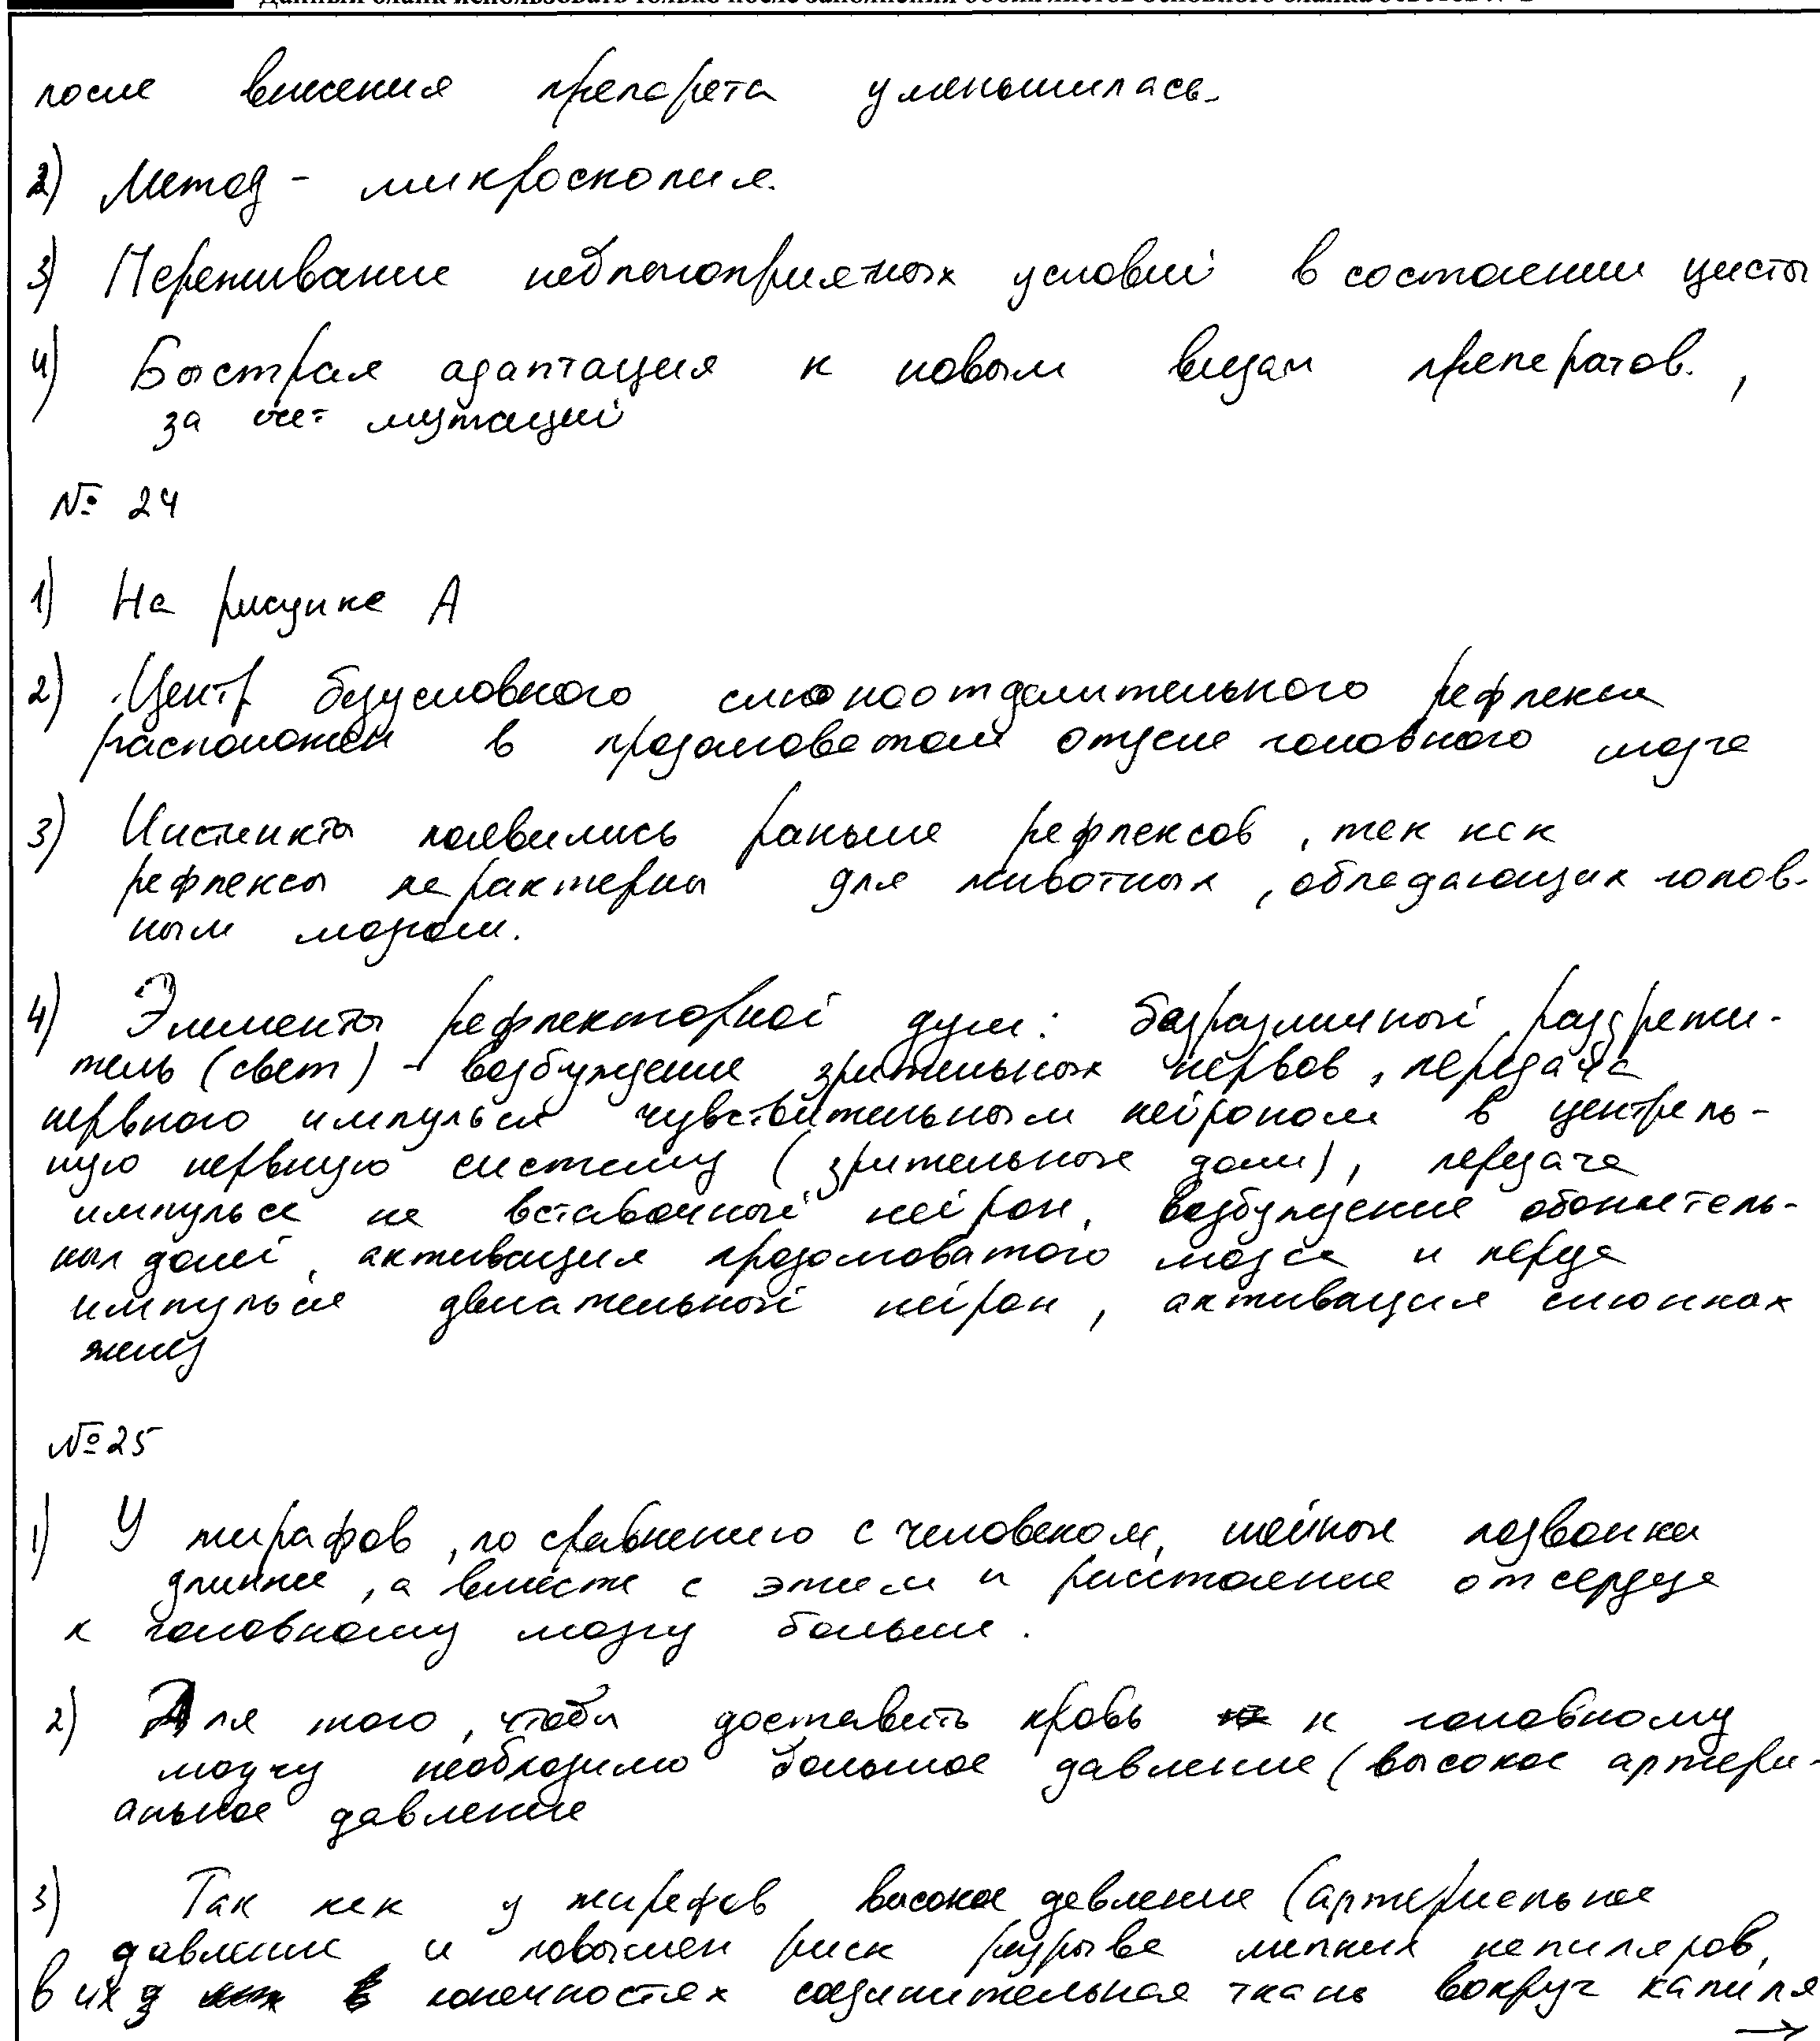 после внесения препарата уменьшилась.
2) Метод - микроскопия.
3) Переживание неблагоприятных условий в состоянии цисты
4) Быстрая адаптация к новым видам препаратов.,
за счет мутаций
№ 24
1) На рисунке А
2) Центр безусловного слюноотделительного рефлекса
расположен в продолговатом отделе головного мозга
3) Инстинкты появились раньше рефлексов, так как
рефлексы характерны для животных, обладающих голов-
ным мозгом.
4) Элементы рефлекторной дуги: безразличный раздражи-
тель (свет) - возбуждение зрительных нервов, передача
нервного импульса чувствительным нейроном в централь-
ную нервную систему (зрительные доли), передача
импульса на вставочный нейрон, возбуждение обонятель-
ных долей, активация продолговатого мозга и
импульса двигательный нейрон, активация слюнных
желез
№ 25
1) У жирафов, по сравнению с человеком, шейные позвонки
длиннее, а вместе с этим и расстояние от сердца
к головному мозгу больше.
2) Для того, чтобы доставить кровь к головному
мозгу необходимо большое давление (высокое артери-
альное давление
3) Так как у жирафов высокое давление (артериальное
давление и повышен риск разрыва мелких капиляров,
в их конечностях соединительная ткань вокруг капиля
→